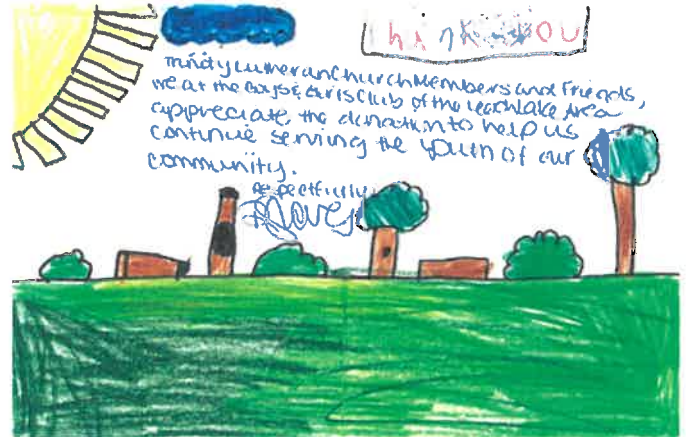 Thank you
Trinity Lutheran Church Members and Friends,
we at the Boys & Girls Club of the Leech Lake Area
appreciate the donation to help us
continue serving the youth of our
community.
Respectfully